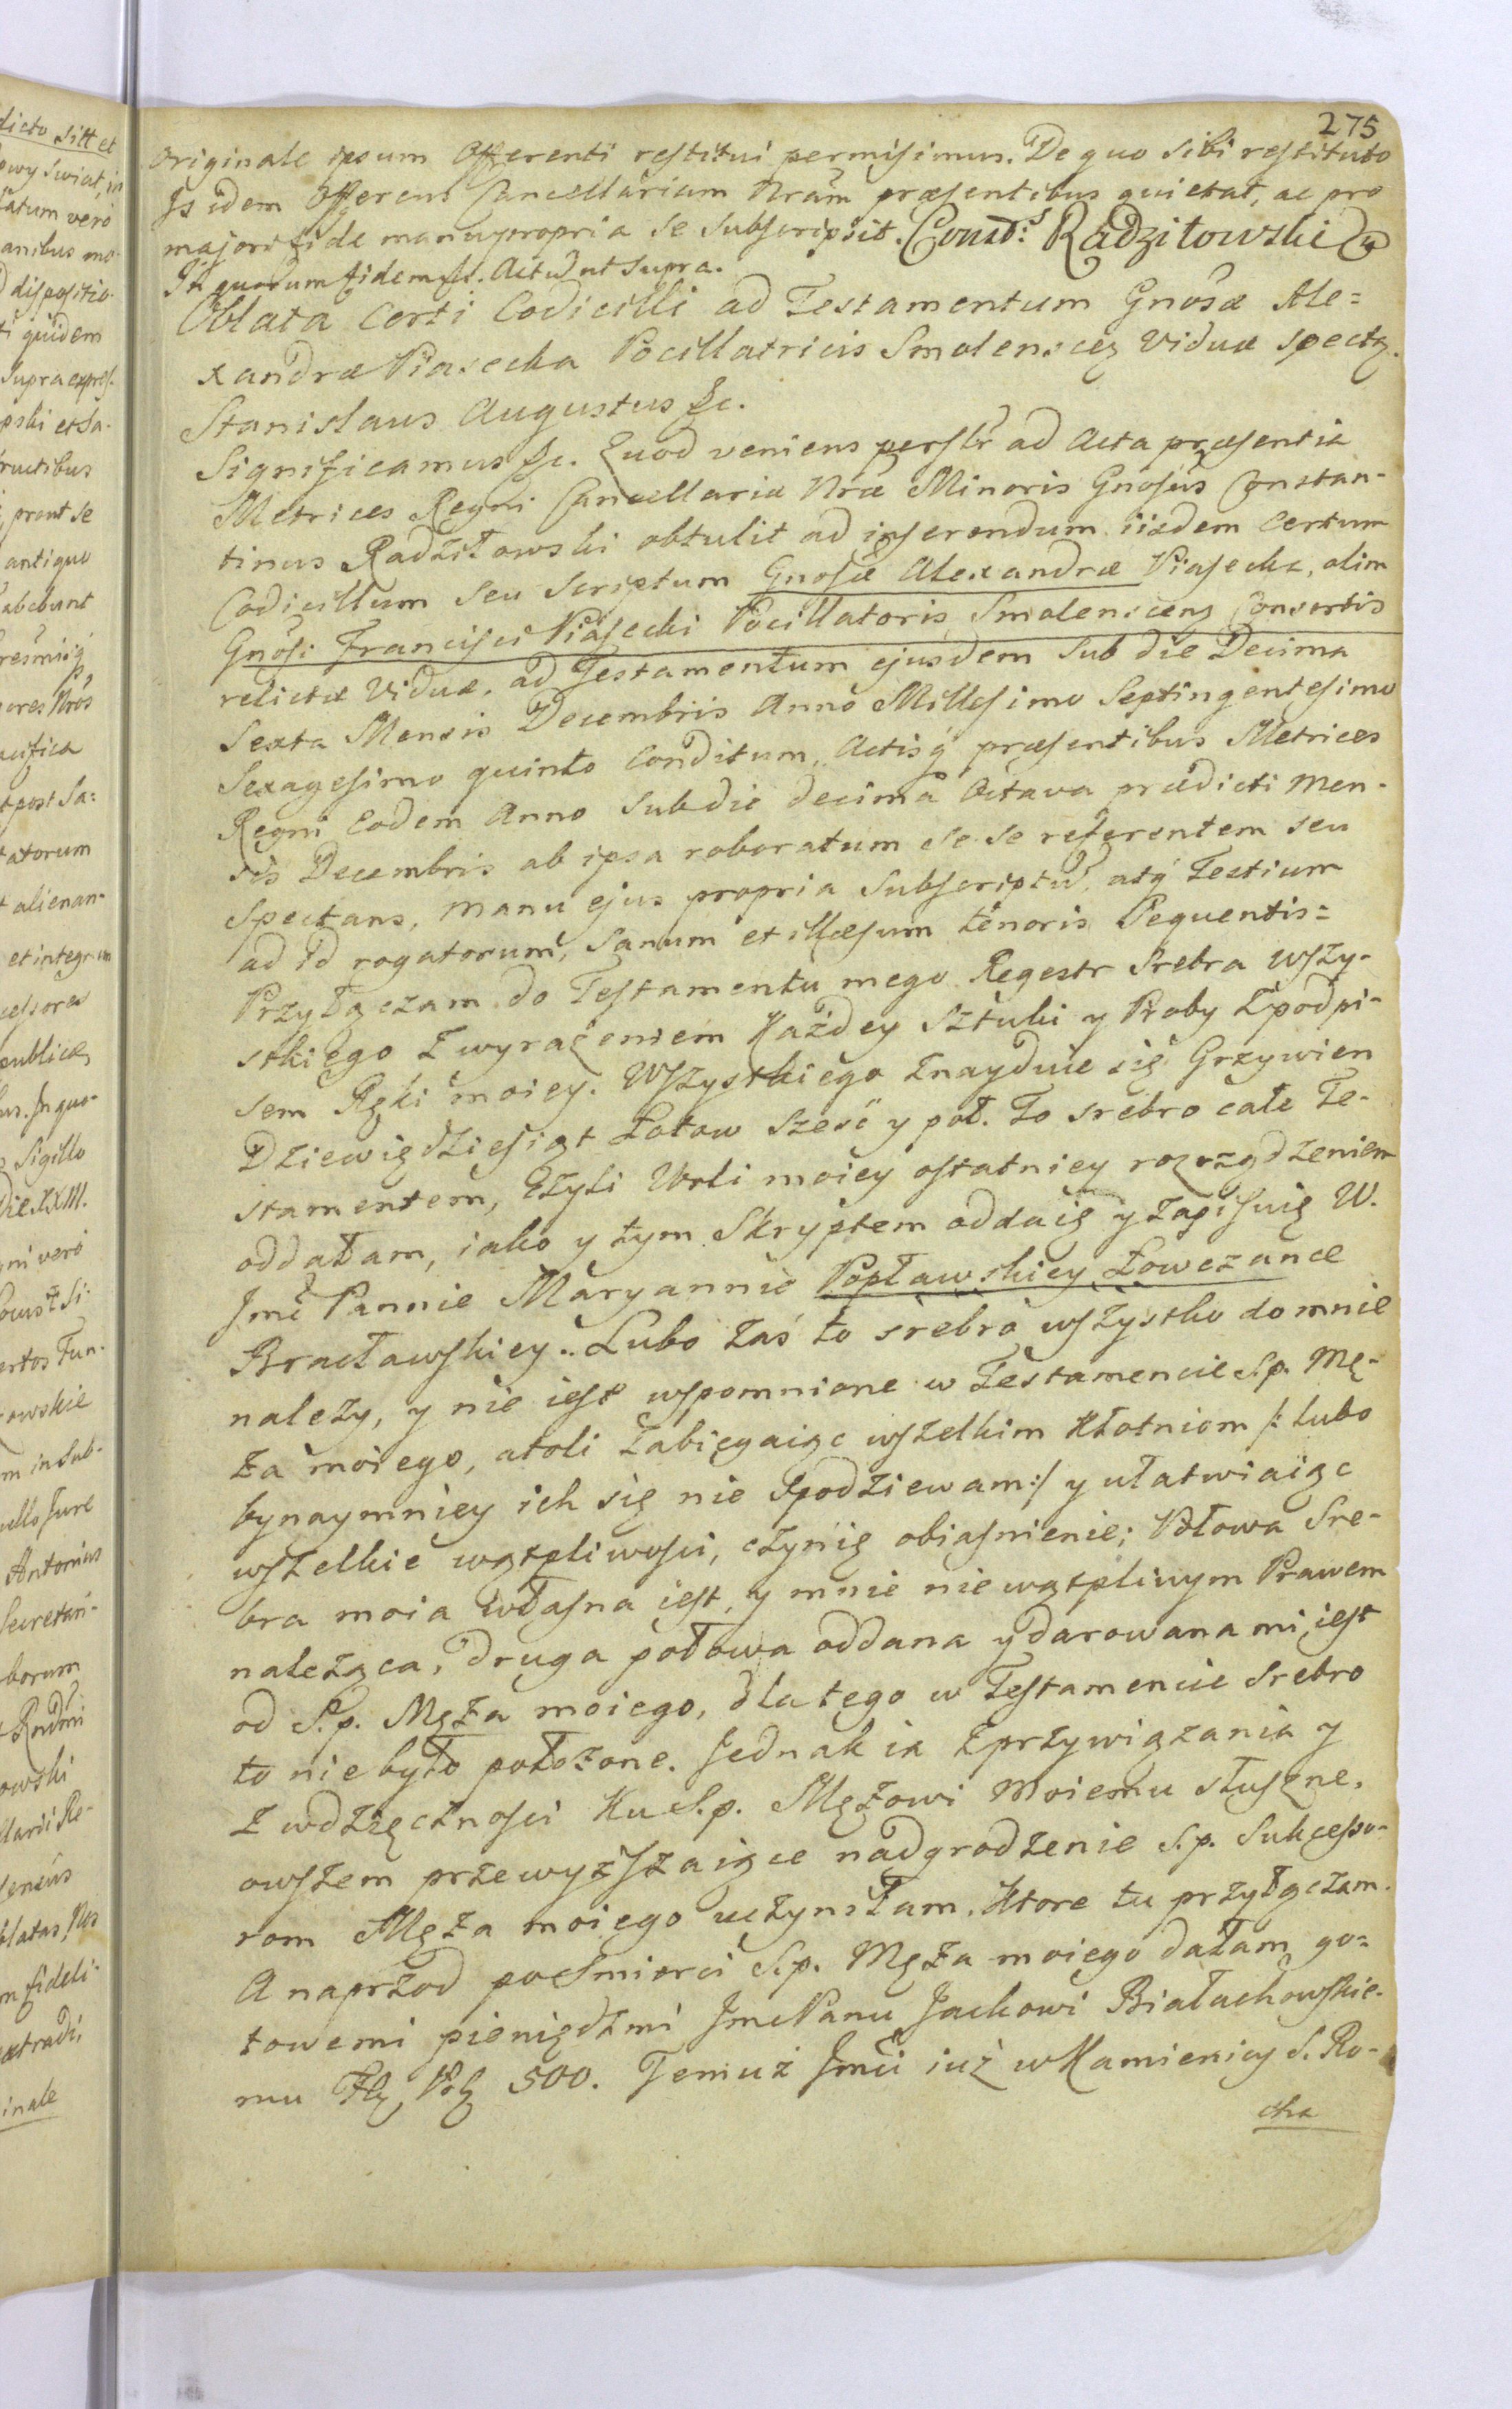 275
originale ipsum Offerenti restitui permisimus. De quo sibi restituto
Is idem Offerens Cancellariam Nram præsentibus quietat, ac pro
majori fide manu propria se subscripsit. Const: Radziłowski
In quorum fidem &c. Actũ ut supra.
Oblata Certi Codicilli ad Testamentum Gnosæ Ale=
xandræ Piasecka Pocillatricis Smolenscez Viduæ spectz.
Stanislaus Augustus &c.
Significamus &c. Quod veniens persłr ad Acta præsentia
Metrices Regni Cancellariæ Nræ Minoris Gnosus Constan-
tinus Radziłowski obtulit ad inserendum iisdem Certum
Codicillum seu Scriptum Gnosæ Alexandræ Piasecka, olim
Gnosi Francisci Piasecki Pocillatoris Smolenscenz Consortis
relictæ Viduæ, ad Testamentum ejusdem sub die Decima
Sexta Mensis Decembris Anno Millesimo Septingentesimo
Sexagesimo quinto Conditum, Actisq́ præsentibus Metrices
Regni Eodem Anno sub die decima Octava prædicti Men-
sis Decembris ab ipsa roboratum se se referentem seu
spectans, manu ejus propria subscriptũ, atq́ Testium
ad id rogatorum, sanum et illæsum tenoris sequentis=
Przyłączam do Testamentu mego Regestr Srebra wszy-
stkiego z wyrażeniem Każdey sztuki y Proby z podpi-
sem Ręki moiey. Wszystkiego znayduie się Grzywien
Dziewiędziesiąt Łotow sześć y poł. To srebro całe Te-
stamentem, czyli Woli moiey ostatniey rozrządzeniem
oddałam, iako y tym Skryptem oddaię y zapisuię W.
Jmć Pannie Maryannie Popławskiey Łowczance
Bracławskiey.. Lubo zaś to srebro wszystko do mnie
należy, y nie iest wspomnione w Testamencie S.p. Mę-
ża moiego, atoli zabiegaiąc wszelkim Kłotniom /: lubo
bynaymniey ich się nie spodziewam :/ y ułatwiaiąc
wszelkie wątpliwości, czynię obiasnienie; Połowa Sre-
bra moia własna iest, y mnie niewątpliwym Prawem
należąca, druga połowa oddana y darowana mi, iest
od S.p. Męża moiego, dlatego w Testamencie srebro
to nie było położone. Jednak ia z przywiązania y
z wdzięczności Ku S.p. Mężowi moiemu słuszne,
owszem przewyższaiące nadgrodzenie S.p. Sukcesso-
rom Męża moiego uczyniłam. Ktore tu przyłączam.
A naprzod po śmierci S.p. Męża moiego dałam go=
towemi pieniędzmi Jmć Panu Jackowi Białachowskie-
mu Złz Polz 500. Temuż Jmci iuż w Kamienicy S. Ro-
cha